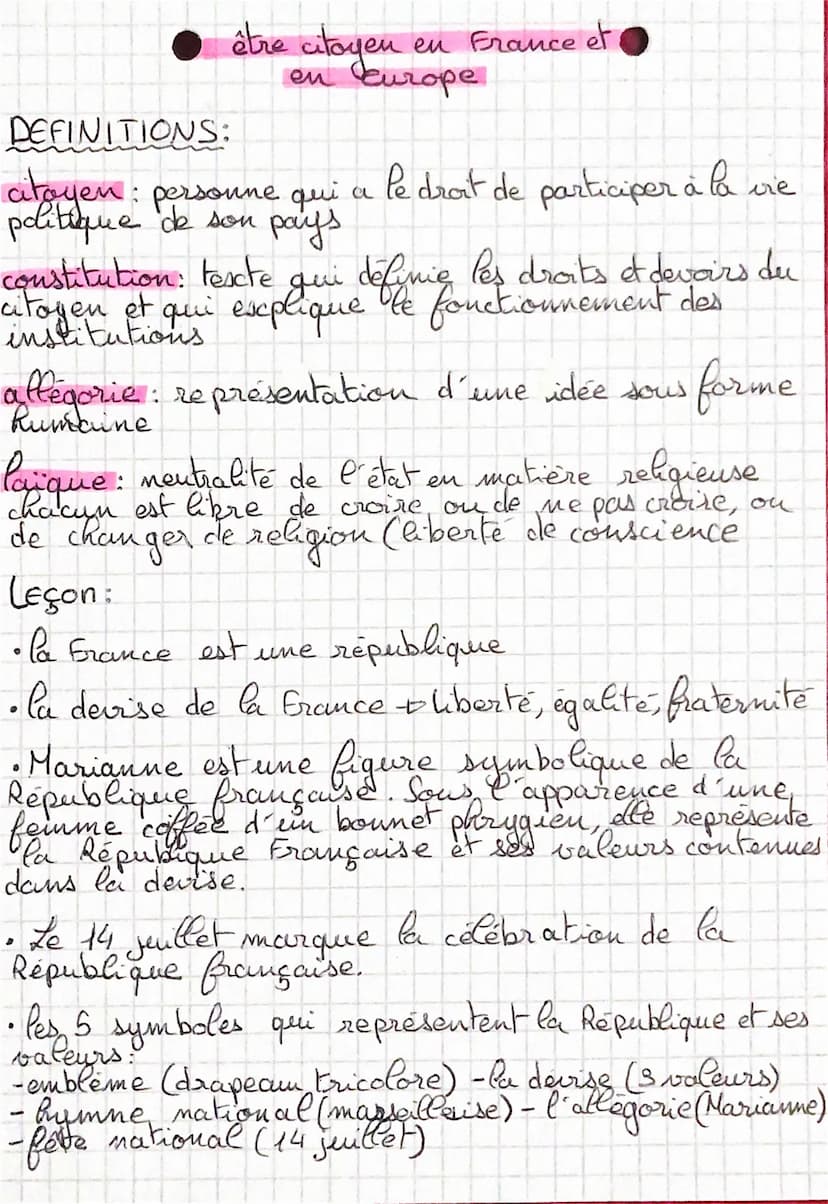 être citoyen en France et
en Europe
DEFINITIONS:
citoyen : personne qui a le droit de participer à la vie
politique de son pays
constitution : texte qui définie les droits et devoirs du
citoyen et qui explique le fonctionnement des
institutions
allégorie : représentation d'une idée sous forme
humaine
laïque : neutralité de l'état en matière religieuse
chacun est libre de croire, ou de ne pas croire, ou
de changer de religion (liberté de conscience
Leçon :
• la France est une république
• la devise de la France → liberté, égalité, fraternité
• Marianne est une figure symbolique de la
République française. Sous l'apparence d'une
femme coffée d'un bonnet phrygien, elle représente
la République Française et ses valeurs contenues
dans la devise.
• Le 14 juillet marque la célébration de la
République française.
• les 5 symboles qui représentent la République et ses
valeurs :
- emblème (drapeau tricolore) - la devise (3 valeurs)
- hymne national (marseillaise) - l'allégorie (Marianne)
- fête national (14 juillet)